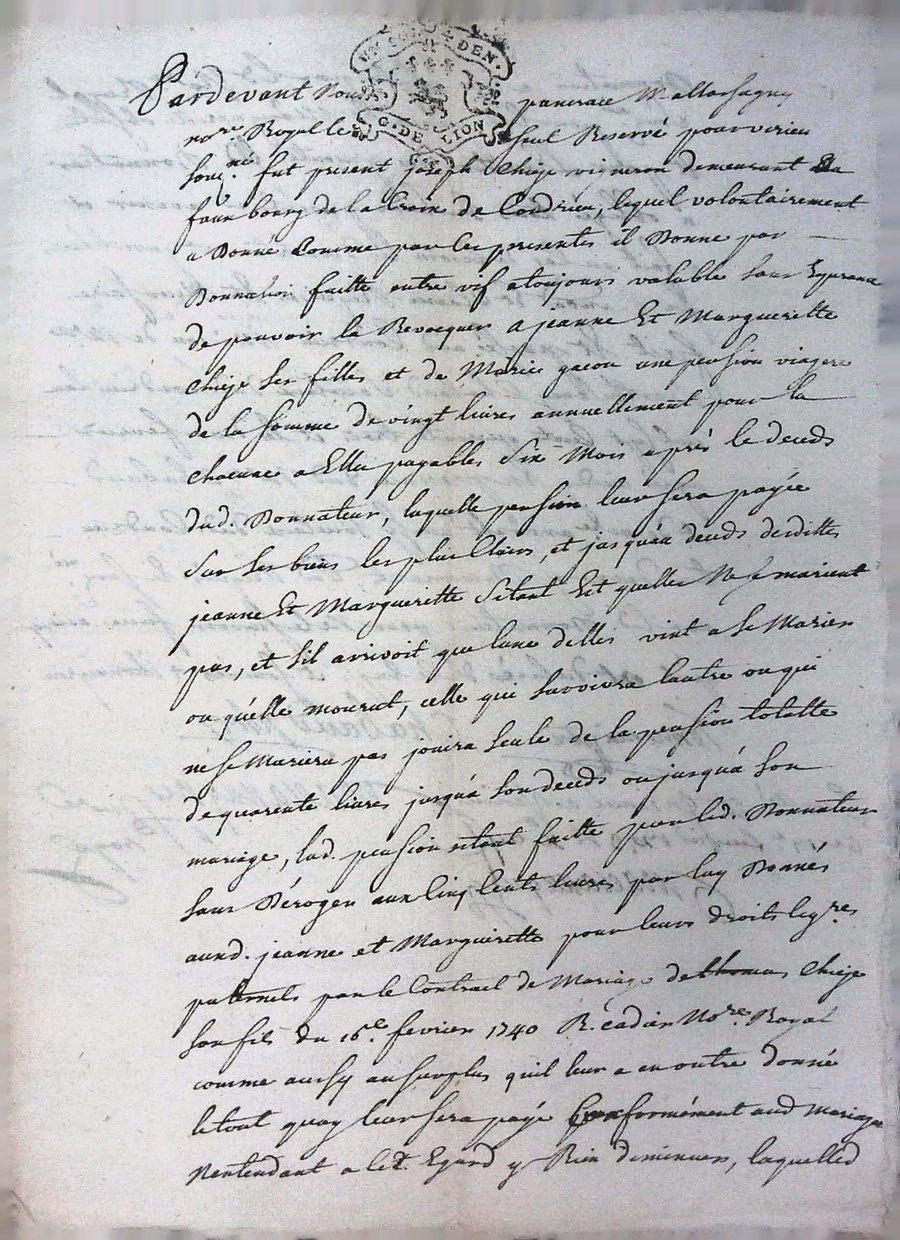 UN SOL 4 DEN.
G. DE LION
Pardevant Nous pancrace
nore. Royal le seul Reservé pour virieu
souz.né fut present joseph Chieze vigneron demeurant
faux bourg de la Croix de Condrieu, lequel volontairement
a Donné Comme par les presentes il Donne par
Donnation faitte entre vif atoujours valable sans Esperance
de pouvoir la Revocquer a jeanne Et Marguerette
Chieze ses filles et de Marie gacon une pension viagere
de la somme de vingt livres annuellement pour la
chacune a Elle payables Six Mois après le deceds
dud. Donnateur, laquelle pension leur sera payée
sur ses biens les plus Clairs, et jusquáu deceds desdittes
jeanne Et Marguerette Sitant Est quelles Ne se marient
pas, et sil arrivoit que lune delles vint a se Marier
ou quélle mourut, celle que survivra lautre ou qui
ne se Mariera pas jouira seule de la pension totalle
de quarente livres jusquá son deceds ou jusquá son
mariage, lad. pension etant faitte par led. Donnateur
sans Déroger aux Cinq Cents livres par luy Donnés
auxd. jeanne et Marguerette pour leurs droits legres
paternels par le Contrat de Mariage de thomas Chieze
son fils du 16e. fevrier 1740 R. Nore. Royal
comme aussy au surplus quil leur a en outre donné
le tout quoy leur sera payé Conformément aud Mariage
Nentendant a Cet. Egard y Rien diminuer, laquelled